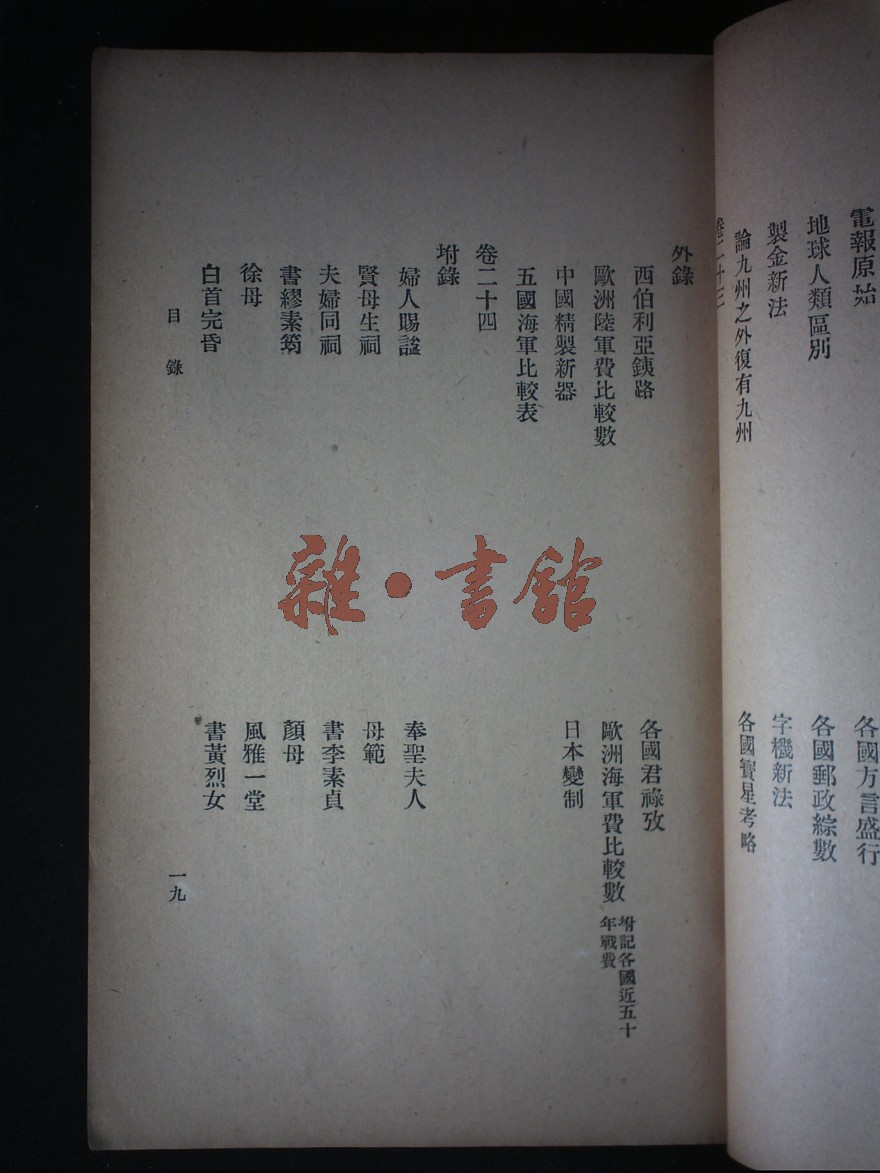 電報原始
各國方言盛行
地球人類區別
各國郵政綜數
製金新法
字機新法
論九州之外復有九州
各國寶星考略
卷二十三
外錄
西伯利亞銕路
各國君祿攷
歐洲陸軍費比較數
歐洲海軍費比較數 坿記各國近五十年戰費
中國精製新器
日本變制
五國海軍比較表
卷二十四
坿錄
婦人賜諡
奉聖夫人
賢母生祠
母範
夫婦同祠
書李素貞
書繆素筠
顏母
徐母
風雅一堂
白首完昏
書黃烈女
目錄
一九
雜·書館